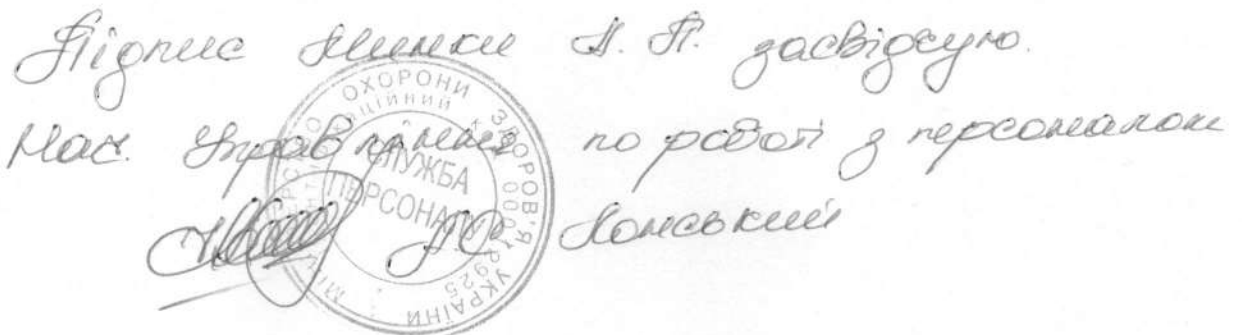 Підпис Минки Н. П. засвідчую.
Нач. Управління по роботі з персоналом
Ю Лонський
МІНІСТЕРСТВО ОХОРОНИ ЗДОРОВ'Я УКРАЇНИ
00012925
СЛУЖБА
ПЕРСОНАЛУ